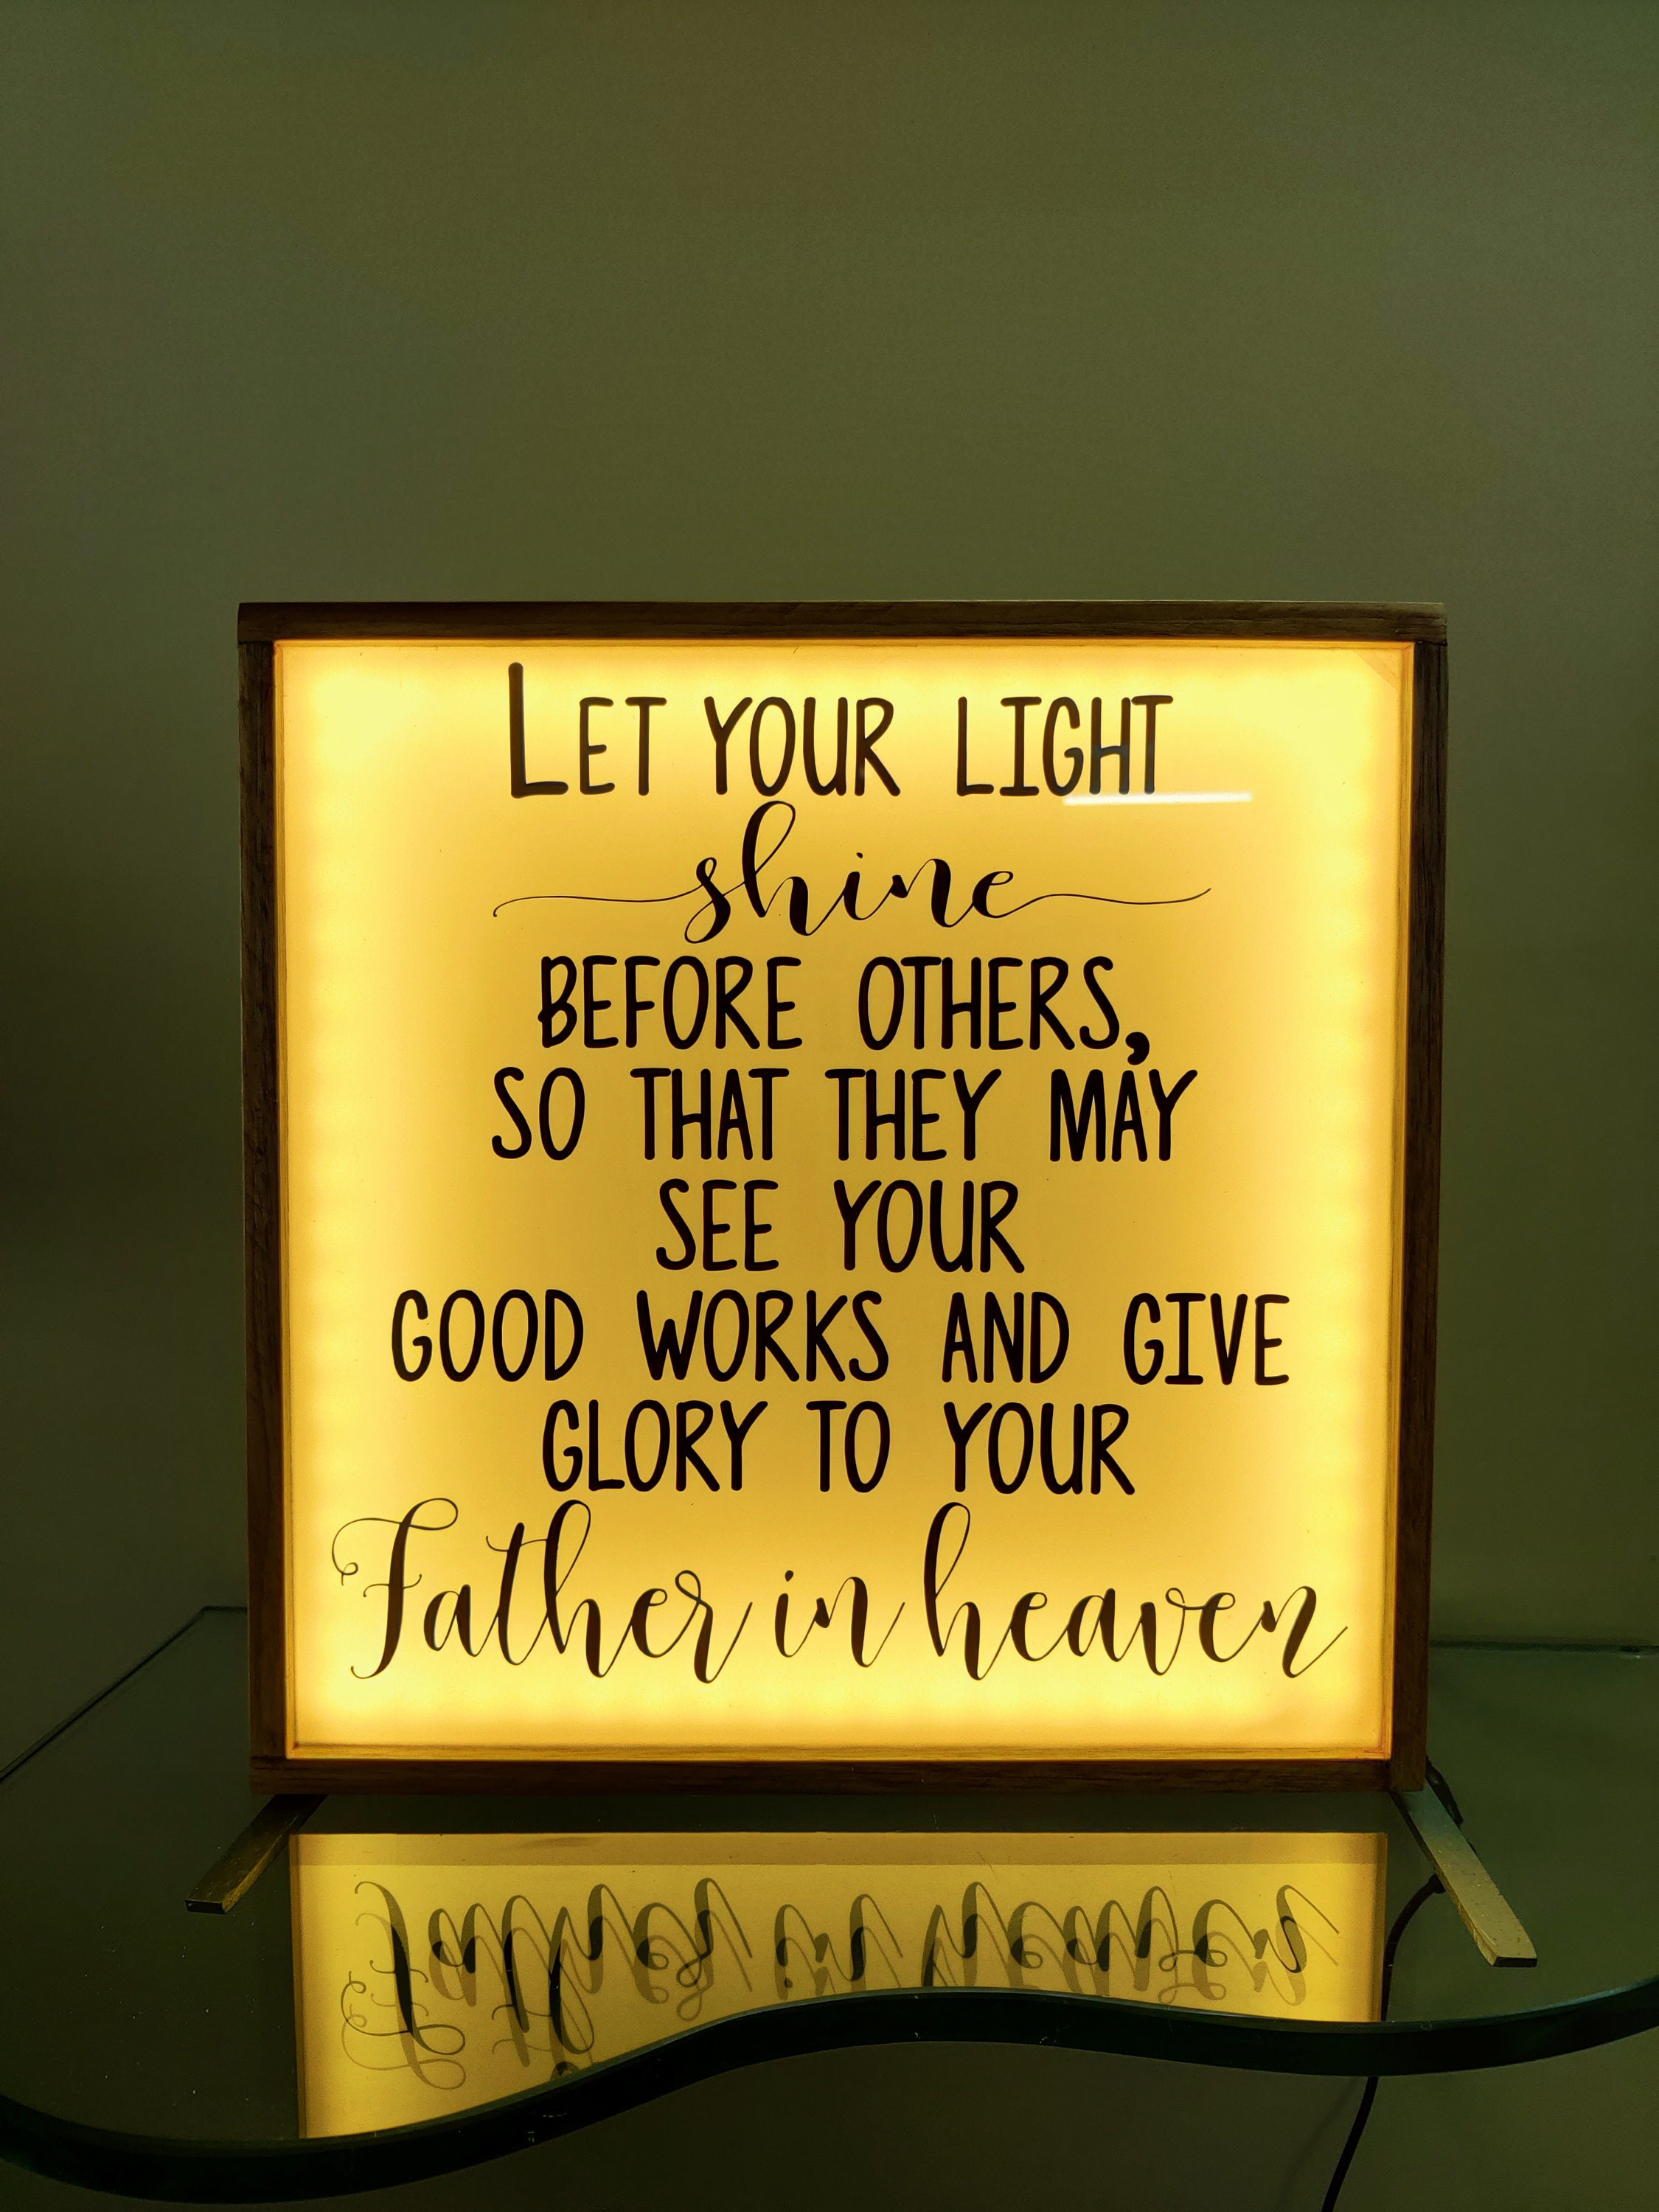 LET YOUR LIGHT
shine
BEFORE OTHERS,
SO THAT THEY MAY
SEE YOUR
GOOD WORKS AND GIVE
GLORY TO YOUR
Father in heaven